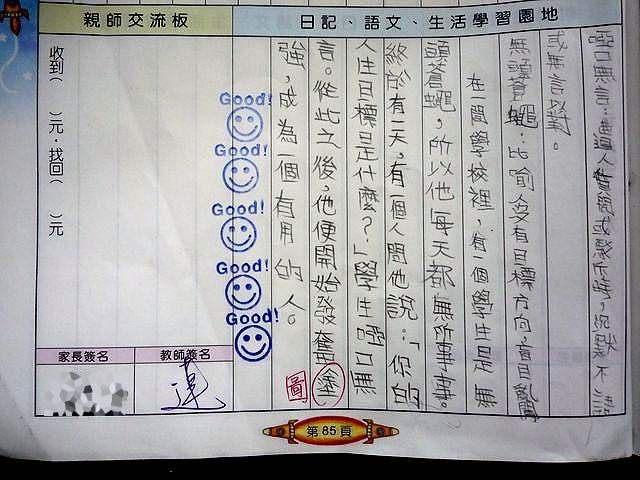 親師交流板
日記、語文、生活學習園地
啞口無言：遭人質問或駁斥時，沉默不語
或無言以對。
無頭蒼蠅：比喻人沒有目標方向，盲目亂闖
在一間學校裡，有一個學生是無
頭蒼蠅，所以他每天都無所事事。
終於有一天，有一個人問他說：「你的
人生目標是什麼？」學生啞口無
言。從此之後，他便開始發奮塗
強，成為一個有用的人。
圖
Good!
Good!
Good!
Good!
Good!
收到（　　）元．找回（　　）元
家長簽名
教師簽名
蓮
第85頁